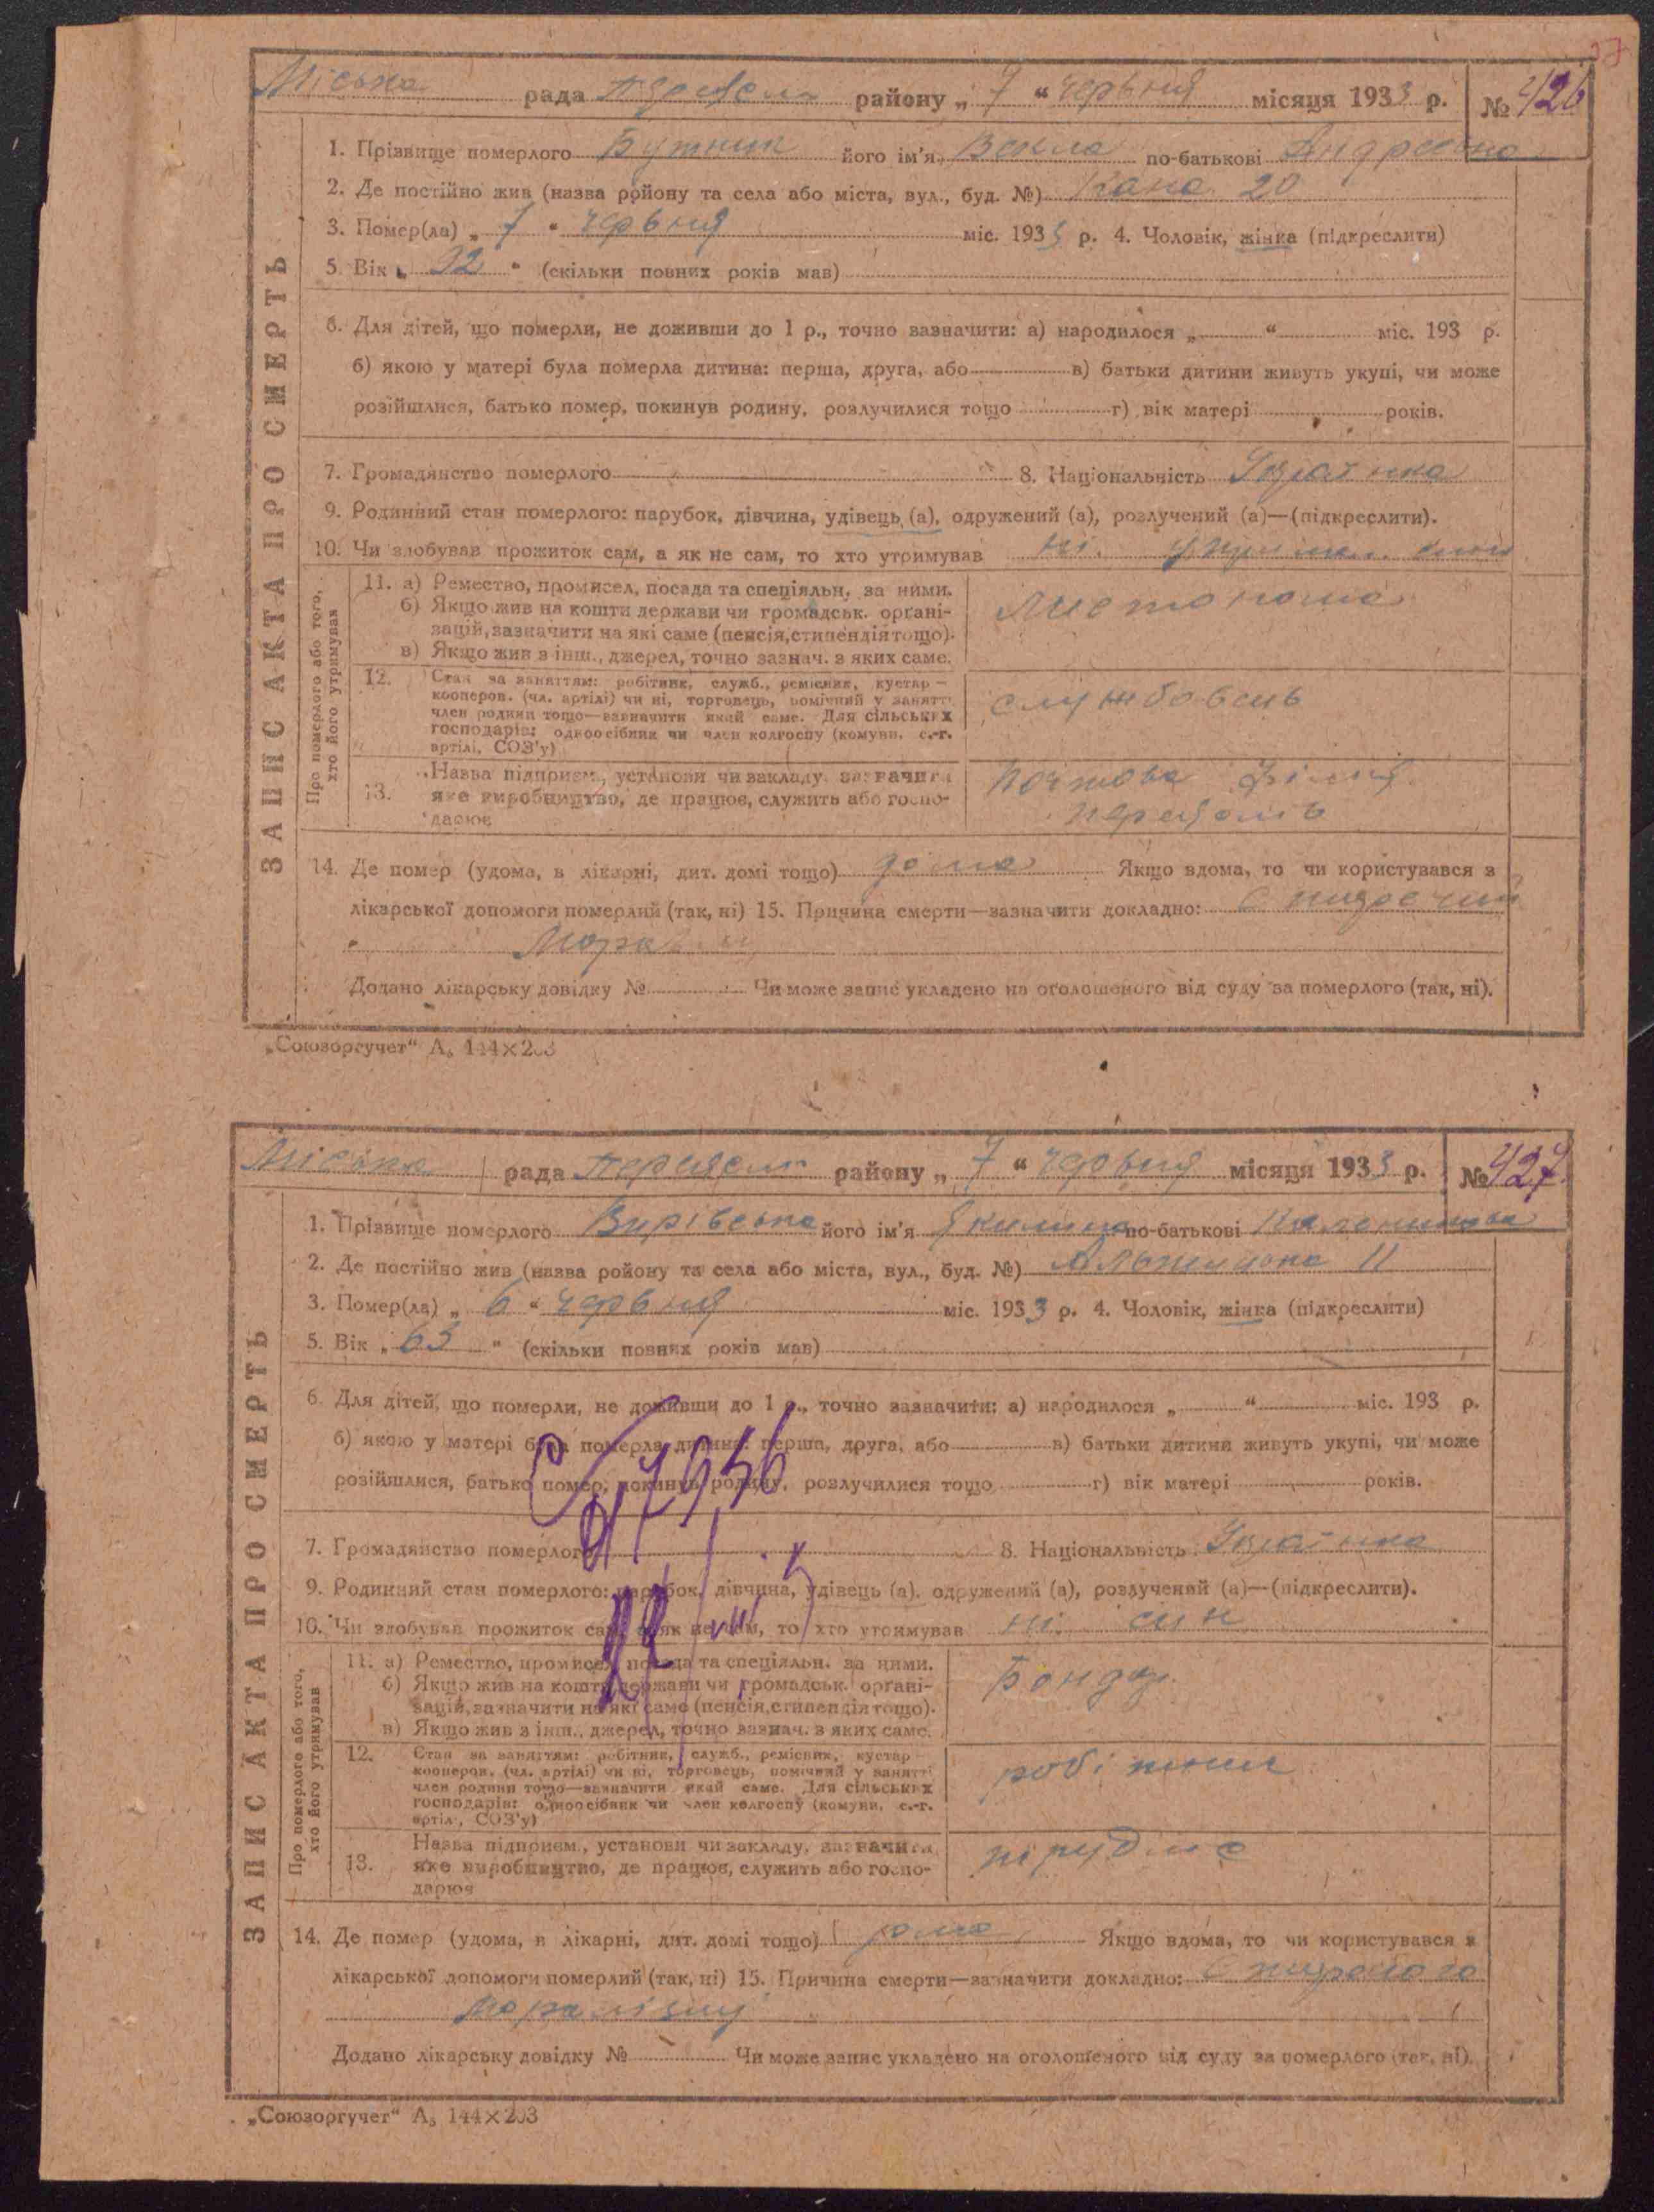 Міська рада Переясл району „ 7 “ червня місяця 1933 р. № 426
ЗАПИС АКТА ПРО СМЕРТЬ
1. Прізвище померлого Бутник його ім'я Векла по-батькові Андреевна
2. Де постійно жив (назва ройону та села або міста, вул., буд. №) 20
3. Помер(ла) „ 7 “ червня міс. 1933 р. 4. Чоловік, жінка (підкреслити)
5. Вік „ “ (скільки повних років мав)
6. Для дітей, що померли, не доживши до 1 р., точно зазначити: а) народилося „ “ міс. 193 р.
б) якою у матері була померла дитина: перша, друга, або в) батьки дитини живуть укупі, чи може
розійшлися, батько помер, покинув родину, розлучилися тощо г) вік матері років.
7. Громадянство померлого 8. Національність Українка
9. Родинний стан померлого: парубок, дівчина, удівець (а), одружений (а), розлучений (а)—(підкреслити).
10. Чи здобував прожиток сам, а як не сам, то хто утримував ні.
Про померлого або того, хто його утримував
11. а) Ремество, промисел, посада та спеціяльн. за ними.
б) Якщо жив на кошти держави чи громадськ. органі-
зацій, зазначити на які саме (пенсія, стипендія тощо).
в) Якщо жив з інш., джерел, точно зазнач. з яких саме.
Листоноша
12. Стан за заняттям: робітник, служб., ремісник, кустар —
кооперов. (чл. артілі) чи ні, торговець, помічний у занятті
член родини тощо—зазначити який саме. Для сільських
господарів: одноосібник чи член колгоспу (комуни, с.-г.
артілі, СОЗ'у)
службовець
13. Назва підприєм., установи чи закладу, зазначити
яке виробництво, де працює, служить або госпо-
дарює
Почтова філія
Переяслв
14. Де помер (удома, в лікарні, дит. домі тощо) дома Якщо вдома, то чи користувався з
лікарської допомоги померлий (так, ні) 15. Причина смерти—зазначити докладно:
Додано лікарську довідку № Чи може запис укладено на оголошеного від суду за померлого (так, ні).
„Союзоргучет“ А₅ 144×203
Міська рада Переясл району „ 7 “ червня місяця 1933 р. № 427
ЗАПИС АКТА ПРО СМЕРТЬ
1. Прізвище померлого Вирівська його ім'я Якилина по-батькові
2. Де постійно жив (назва ройону та села або міста, вул., буд. №) 11
3. Помер(ла) „ 6 “ червня міс. 1933 р. 4. Чоловік, жінка (підкреслити)
5. Вік „ 63 “ (скільки повних років мав)
6. Для дітей, що померли, не доживши до 1 р., точно зазначити: а) народилося „ “ міс. 193 р.
б) якою у матері була померла дитина: перша, друга, або в) батьки дитини живуть укупі, чи може
розійшлися, батько помер, покинув родину, розлучилися тощо г) вік матері років.
7. Громадянство померлого 8. Національність Українка
9. Родинний стан померлого: парубок, дівчина, удівець (а), одружений (а), розлучений (а)—(підкреслити).
10. Чи здобував прожиток сам, а як не сам, то хто утримував ні. син
Про померлого або того, хто його утримував
11. а) Ремество, промисел, посада та спеціяльн. за ними.
б) Якщо жив на кошти держави чи громадськ. органі-
зацій, зазначити на які саме (пенсія, стипендія тощо).
в) Якщо жив з інш., джерел, точно зазнач. з яких саме.
Бондар
12. Стан за заняттям: робітник, служб., ремісник, кустар —
кооперов. (чл. артілі) чи ні, торговець, помічний у занятті
член родини тощо—зазначити який саме. Для сільських
господарів: одноосібник чи член колгоспу (комуни, с.-г.
артілі, СОЗ'у)
робітник
13. Назва підприєм., установи чи закладу, зазначити
яке виробництво, де працює, служить або госпо-
дарює
14. Де помер (удома, в лікарні, дит. домі тощо) дома Якщо вдома, то чи користувався з
лікарської допомоги померлий (так, ні) 15. Причина смерти—зазначити докладно:
паралізму
Додано лікарську довідку № Чи може запис укладено на оголошеного від суду за померлого (так, ні).
„Союзоргучет“ А₅ 144×203